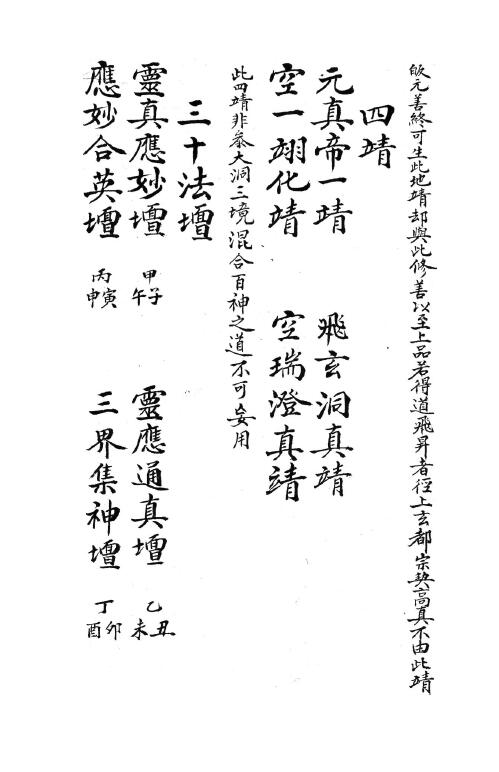 皈元善終可生此地靖却與此修善以至上品若得道飛昇者徑上玄都宗契高真不由此靖
四靖
元真帝一靖　飛玄洞真靖
空一翊化靖　空瑞澄真靖
此四靖非叅大洞三境混合百神之道不可妄用
三十法壇
靈真應妙壇　甲子午　靈應通真壇　乙丑未
應妙合英壇　丙寅申　三界集神壇　丁卯酉